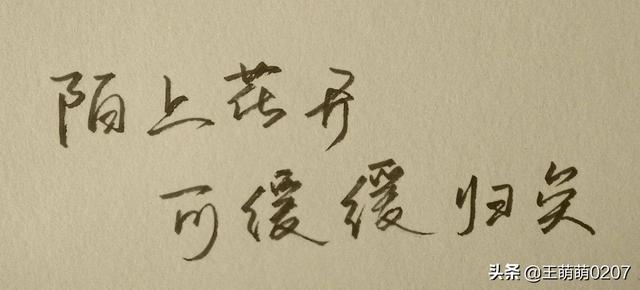 陌上花开
可缓缓归矣
头条 @王萌萌0207